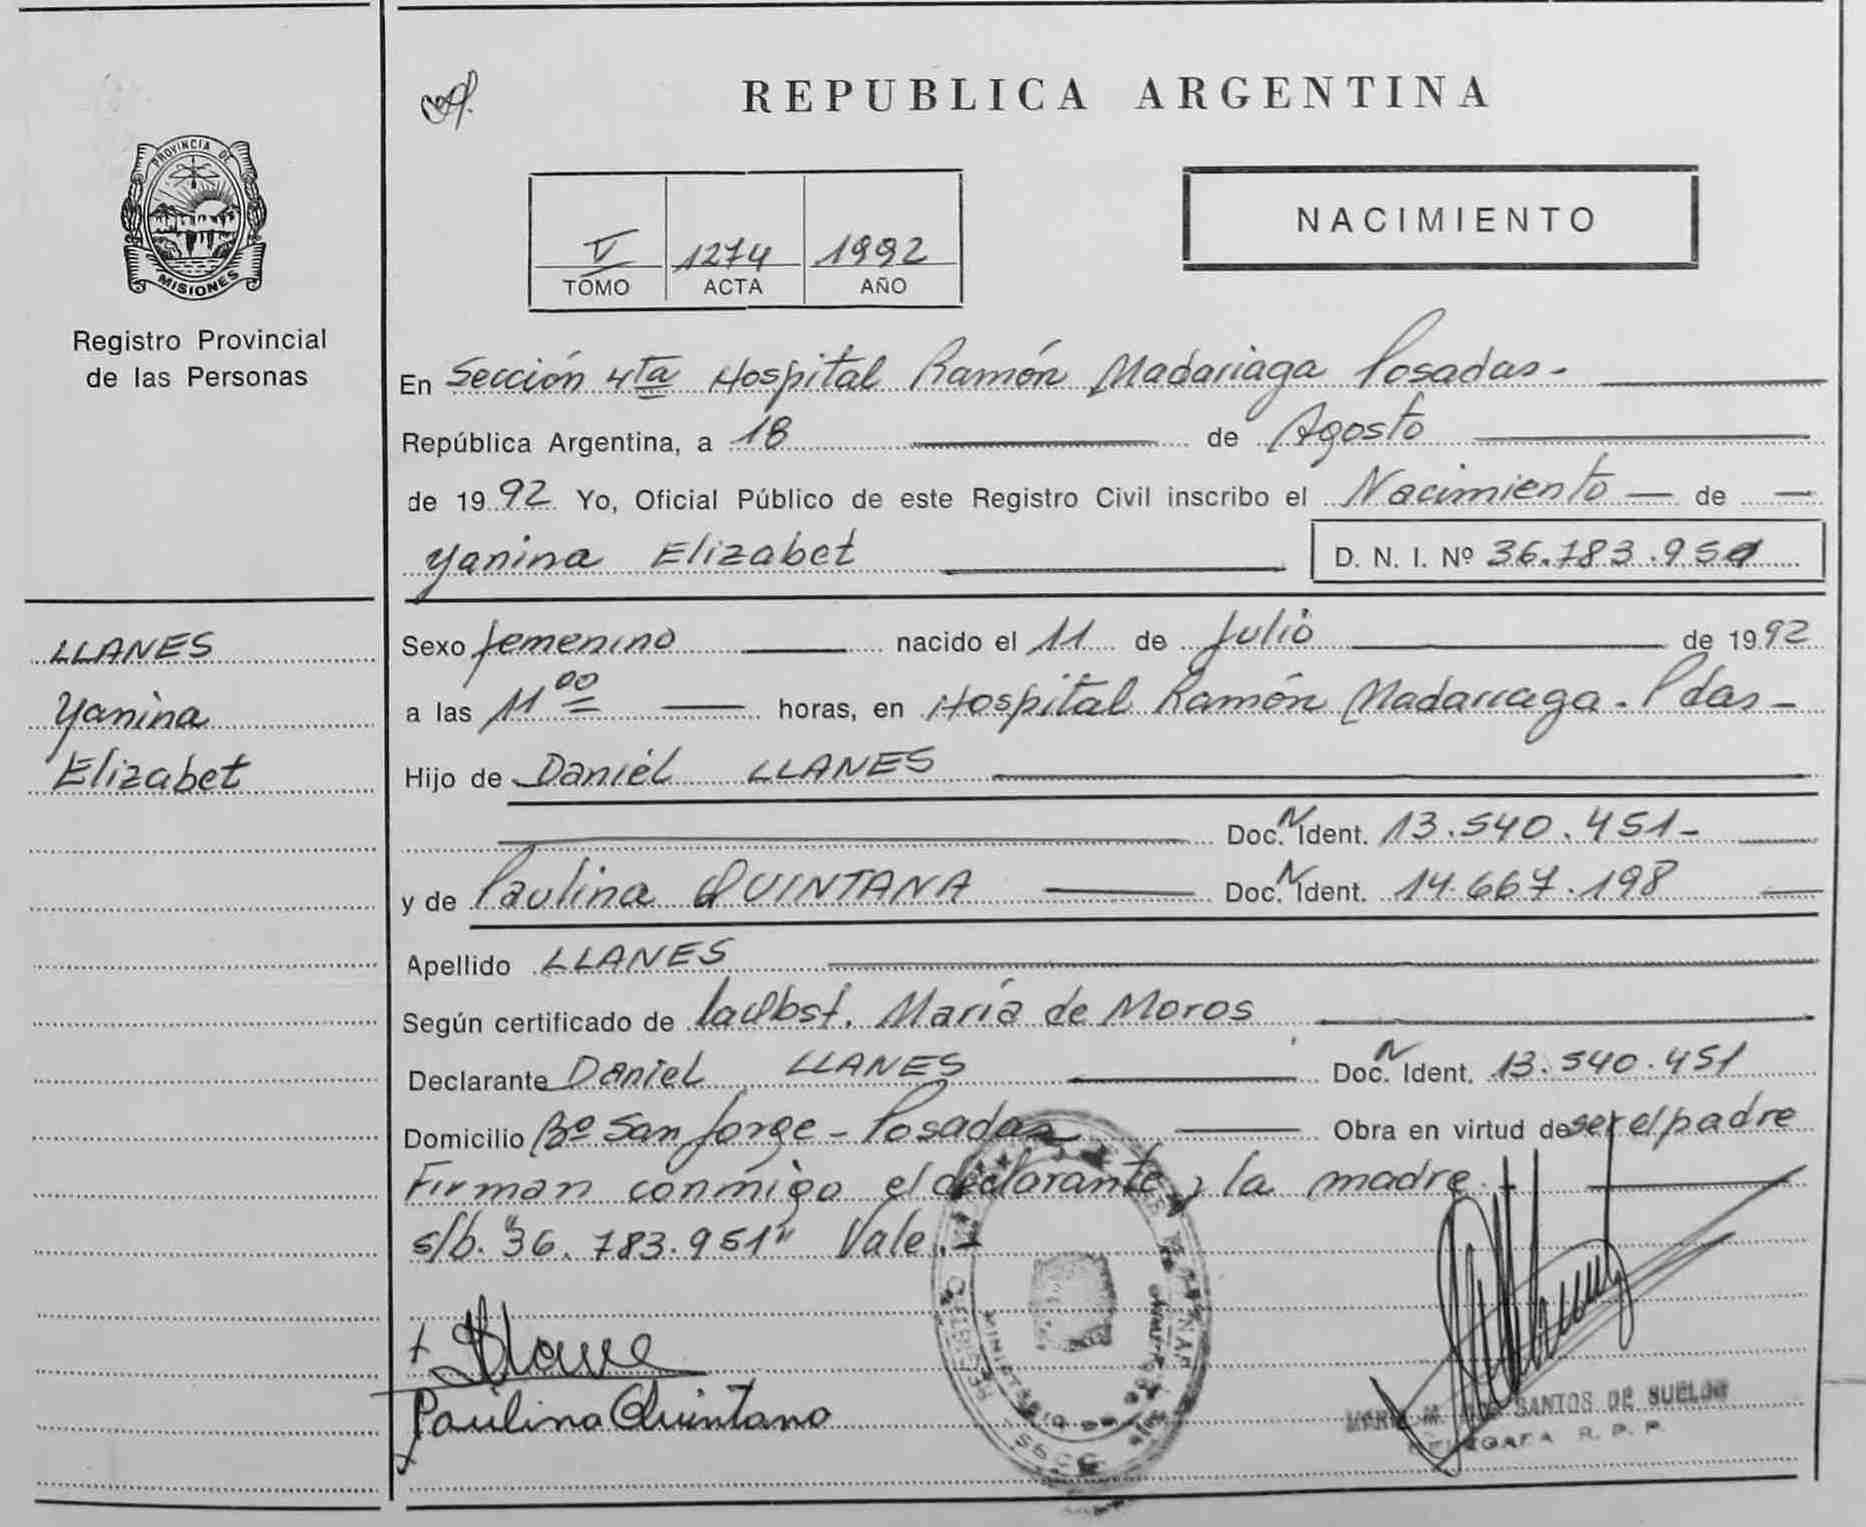 REPUBLICA ARGENTINA
PROVINCIA DE
MISIONES
Registro Provincial
de las Personas
V 1274 1992
TOMO ACTA AÑO
NACIMIENTO
En Sección 4ta Hospital Ramón Madariaga Posadas.-
República Argentina, a 18 de Agosto
de 1992 Yo, Oficial Público de este Registro Civil inscribo el Nacimiento — de —
Yanina Elizabet D. N. I. Nº 36.783.951
LLANES
Yanina
Elizabet
Sexo femenino nacido el 11 de Julio de 1992
a las 11 00 horas, en Hospital Ramón Madariaga. Pdas-
Hijo de Daniel LLANES
Doc. N Ident. 13.540.451-
y de Paulina QUINTANA Doc. N Ident. 14.667.198
Apellido LLANES
Según certificado de la Obst. María de Moros
Declarante Daniel LLANES Doc. N Ident. 13.540.451
Domicilio Bº San Jorge - Posadas Obra en virtud de ser el padre
Firman conmigo el declarante y la madre.-
s/b. "36.783.951" Vale.-
Paulina Quintana
SANTOS DE
R. P. P.